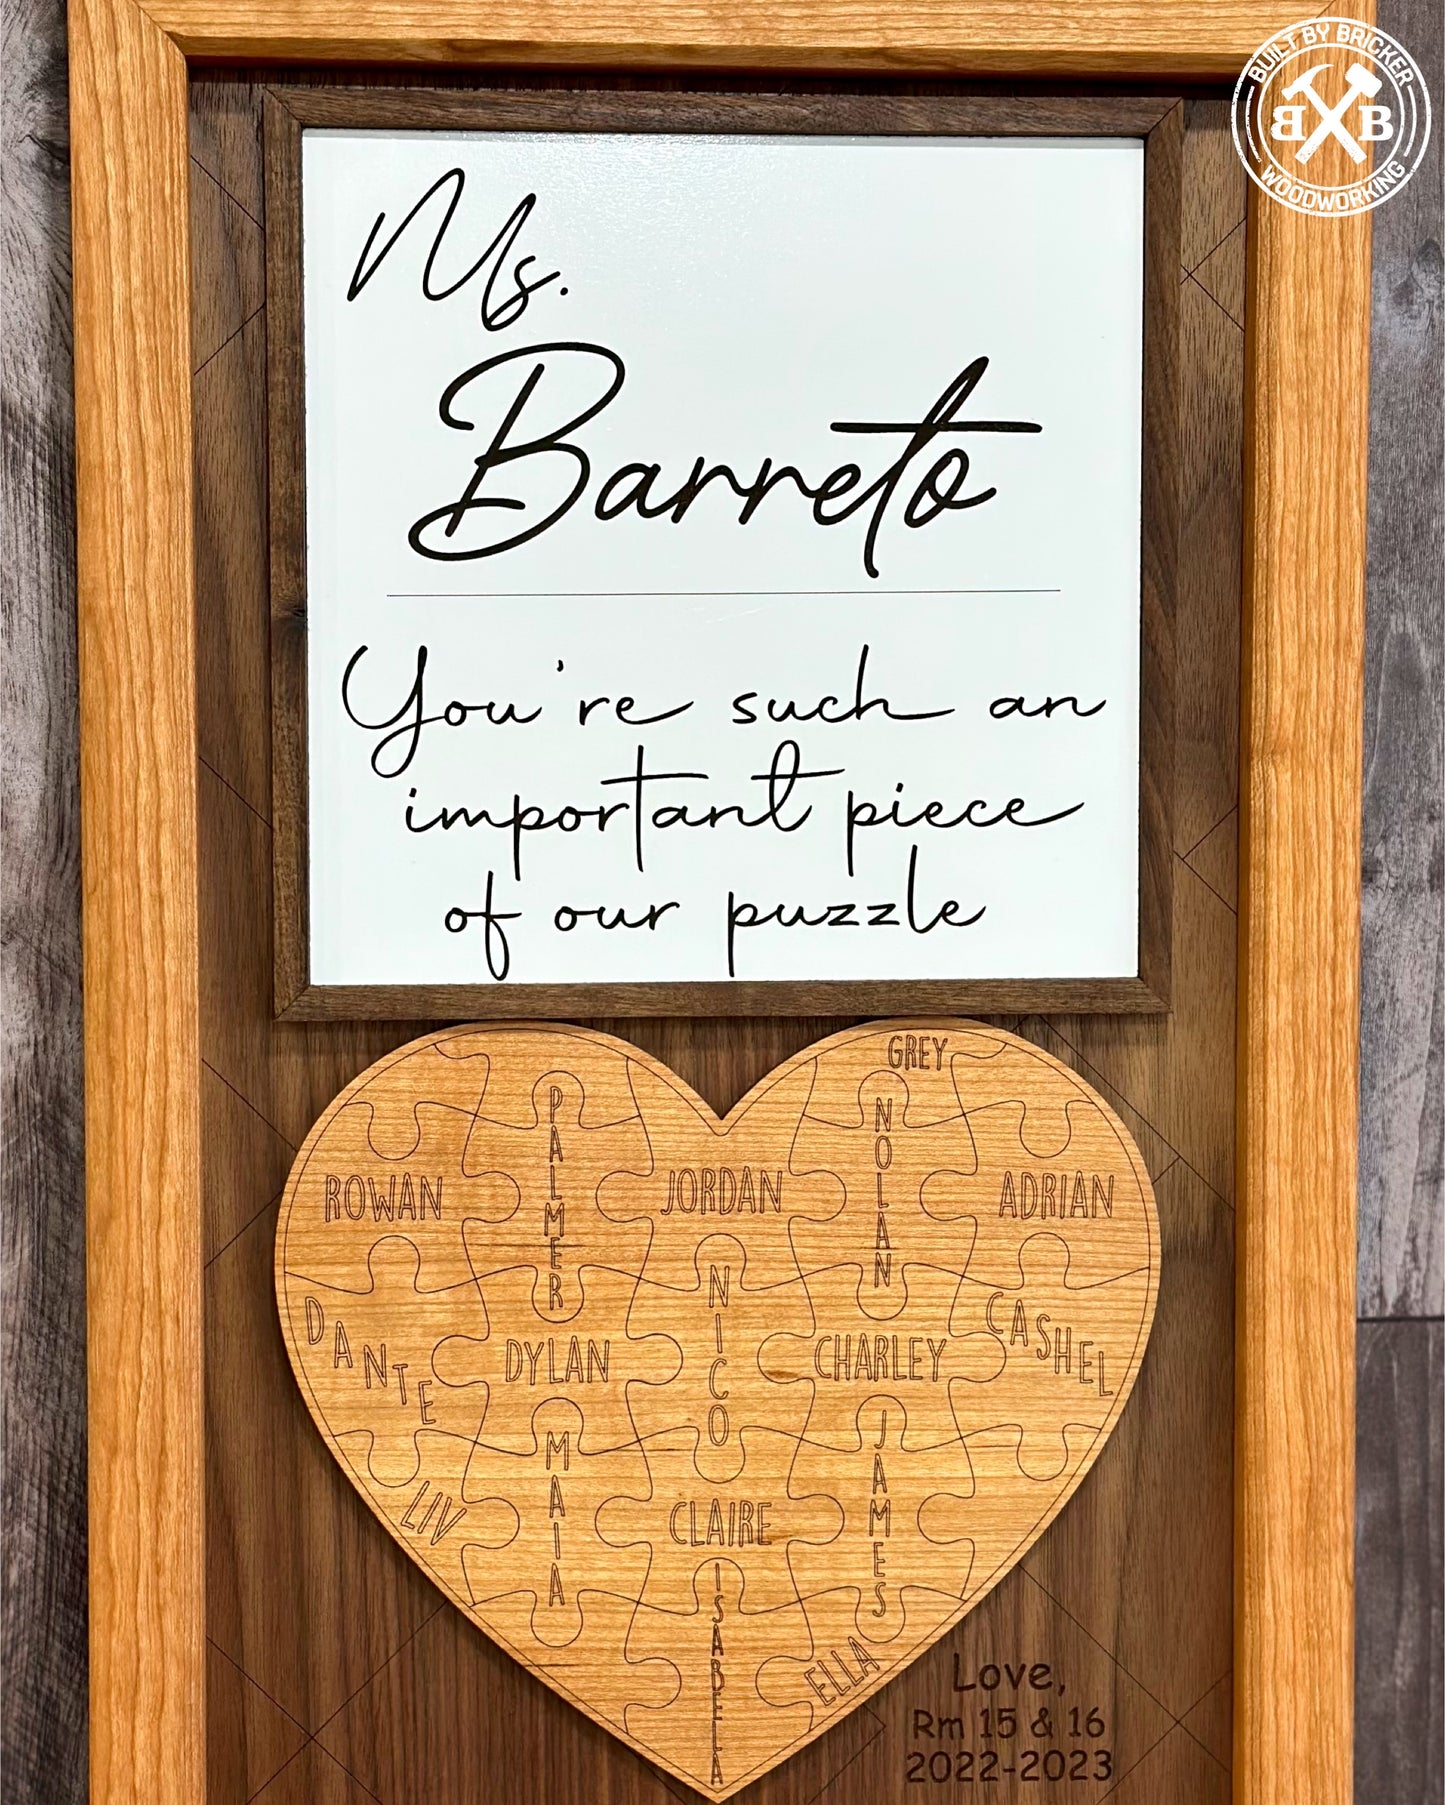 BUILT BY BRICKER
B B
WOODWORKING
Ms.
Barreto
You're such an
important piece
of our puzzle
GREY
PALMER
NOLAN
ROWAN
JORDAN
ADRIAN
DANTE
DYLAN
NICO
CHARLEY
CASHEL
LIV
MAIA
CLAIRE
JAMES
ISABELA
ELLA
Love,
Rm 15 & 16
2022-2023